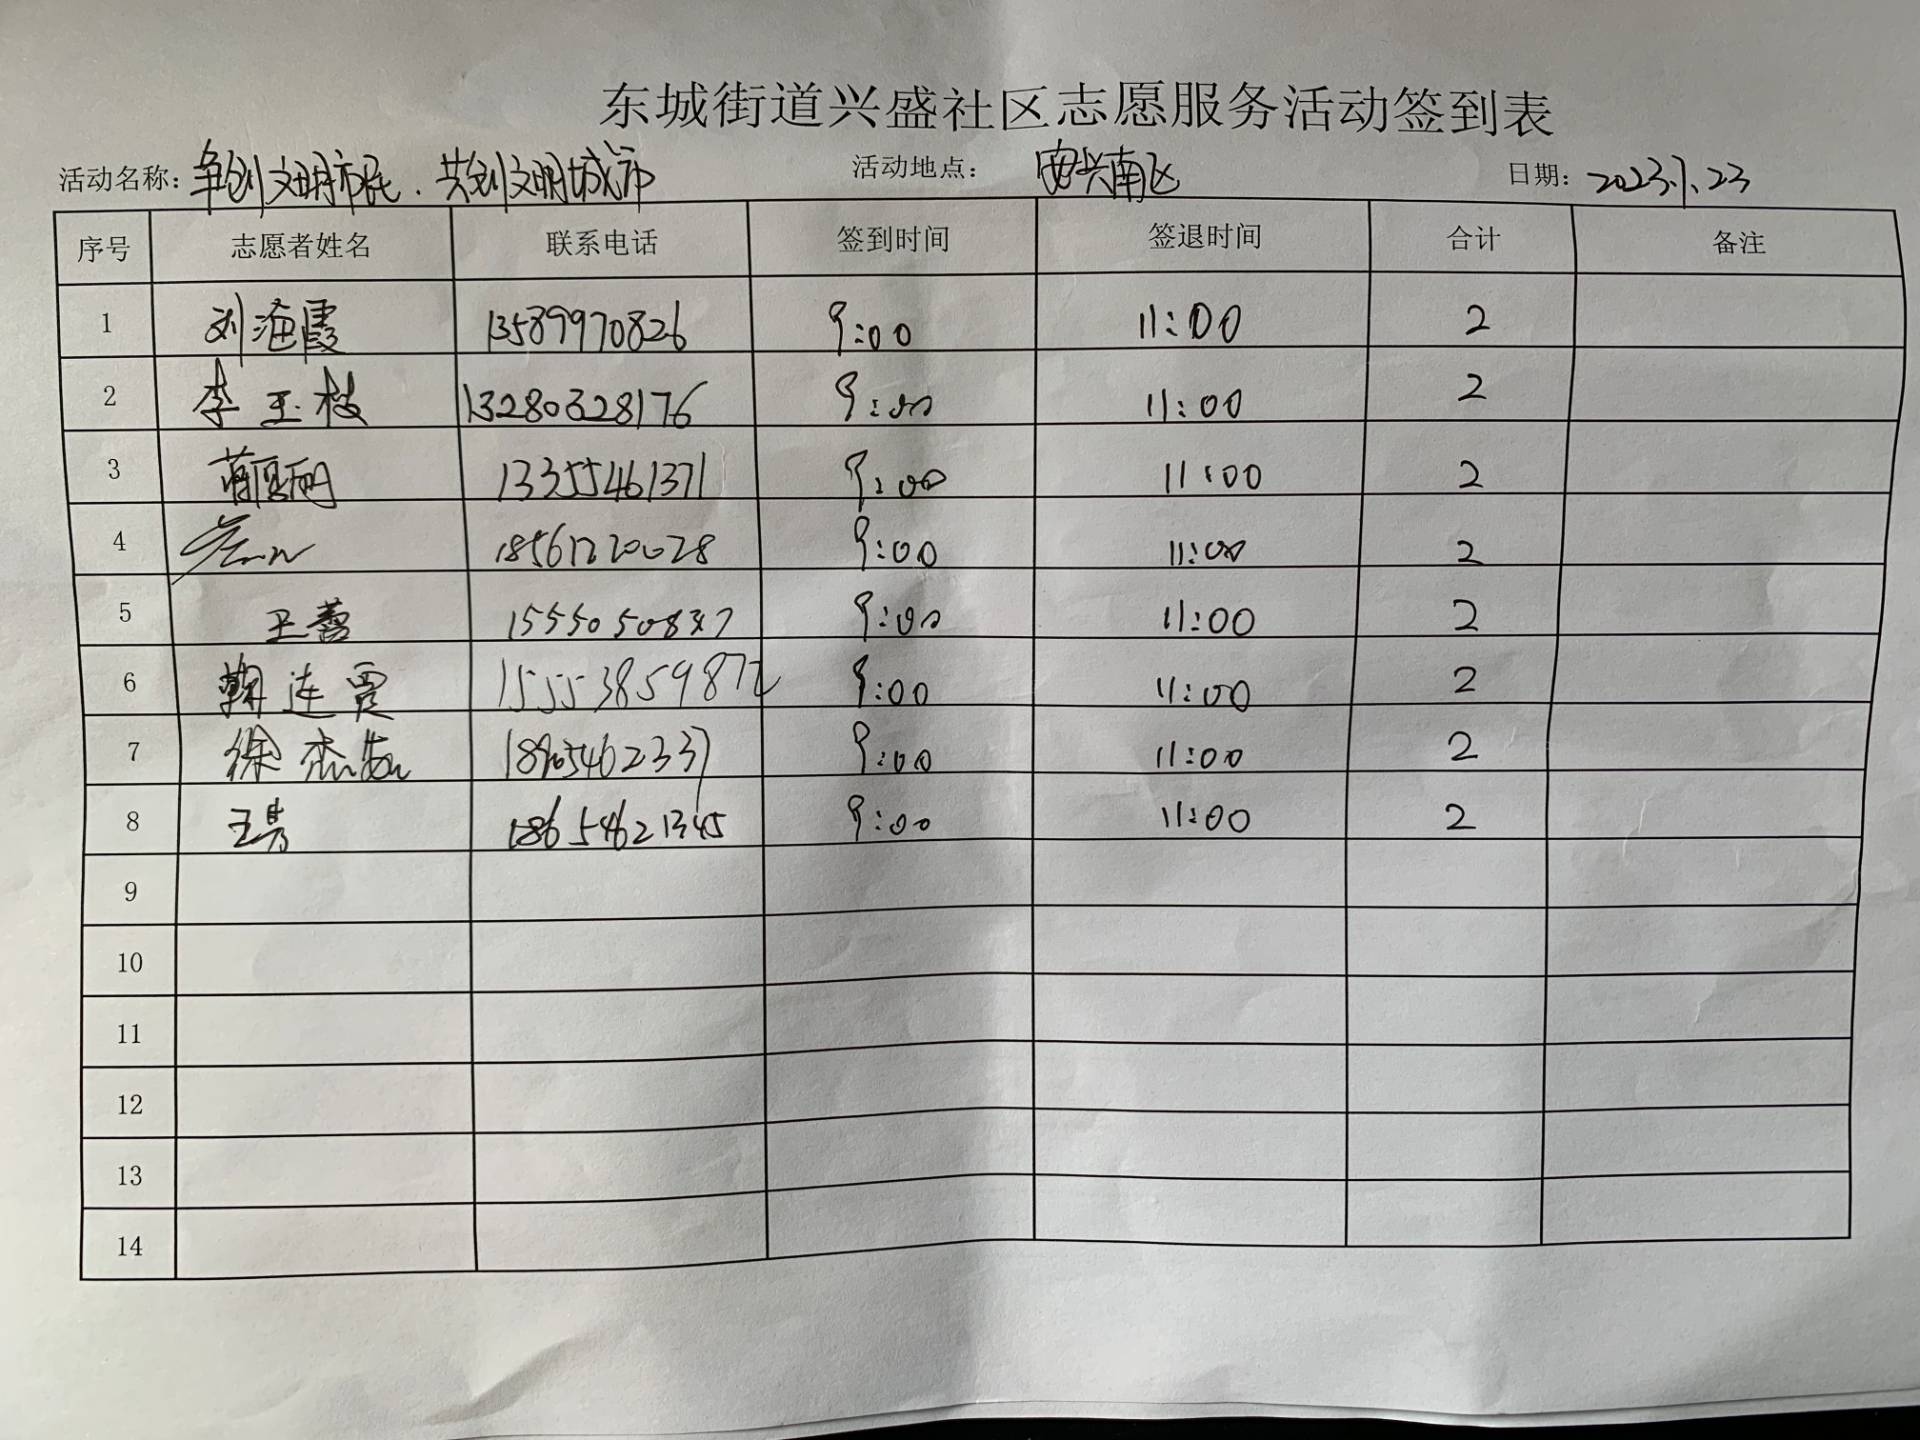 东城街道兴盛社区志愿服务活动签到表
活动名称：争创文明市民．共创文明城市 活动地点：安兴南区 日期：2023.1.23
序号 志愿者姓名 联系电话 签到时间 签退时间 合计 备注
1 刘海霞 13589970826 9:00 11:00 2
2 李玉枝 13280328176 9:00 11:00 2
3 13355461371 9:00 11:00 2
4 18561220028 9:00 11:00 2
5 王蕾 9:00 11:00 2
6 连霞 15553859872 9:00 11:00 2
7 徐 9:00 11:00 2
8 王 18654621345 9:00 11:00 2
9
10
11
12
13
14